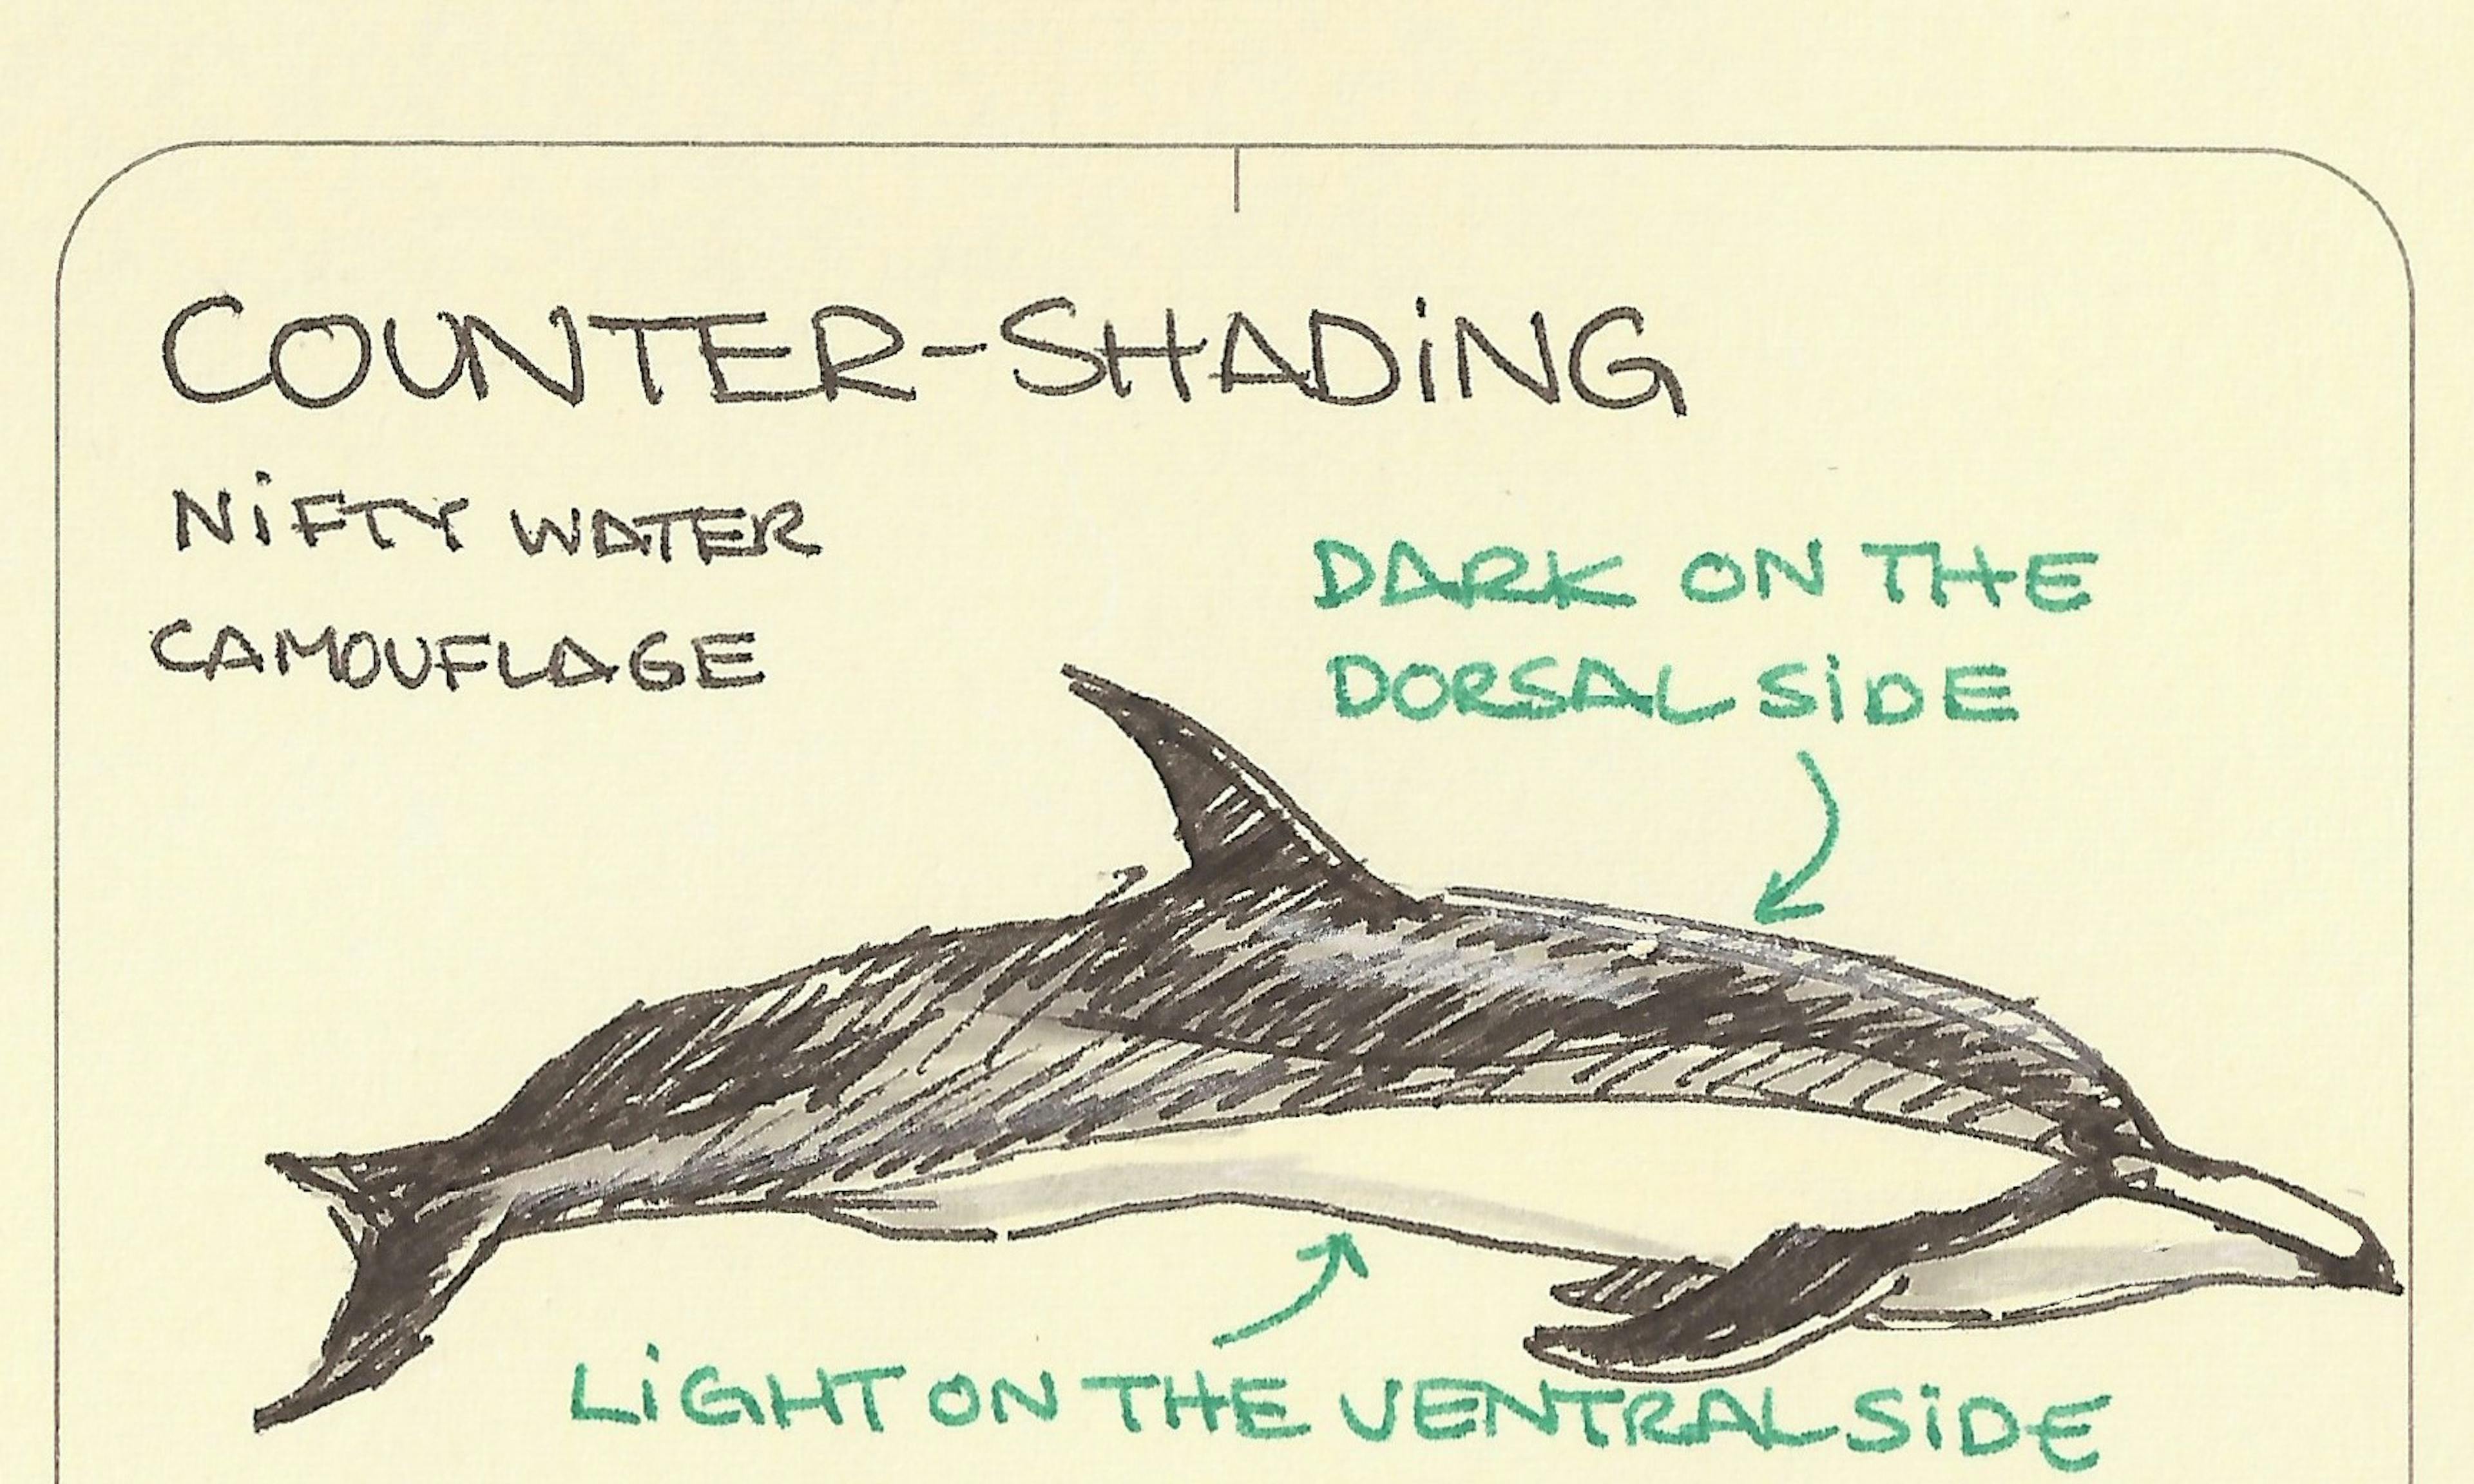 COUNTER-SHADING
NIFTY WATER
CAMOUFLAGE
DARK ON THE
DORSAL SIDE
LIGHT ON THE VENTRAL SIDE